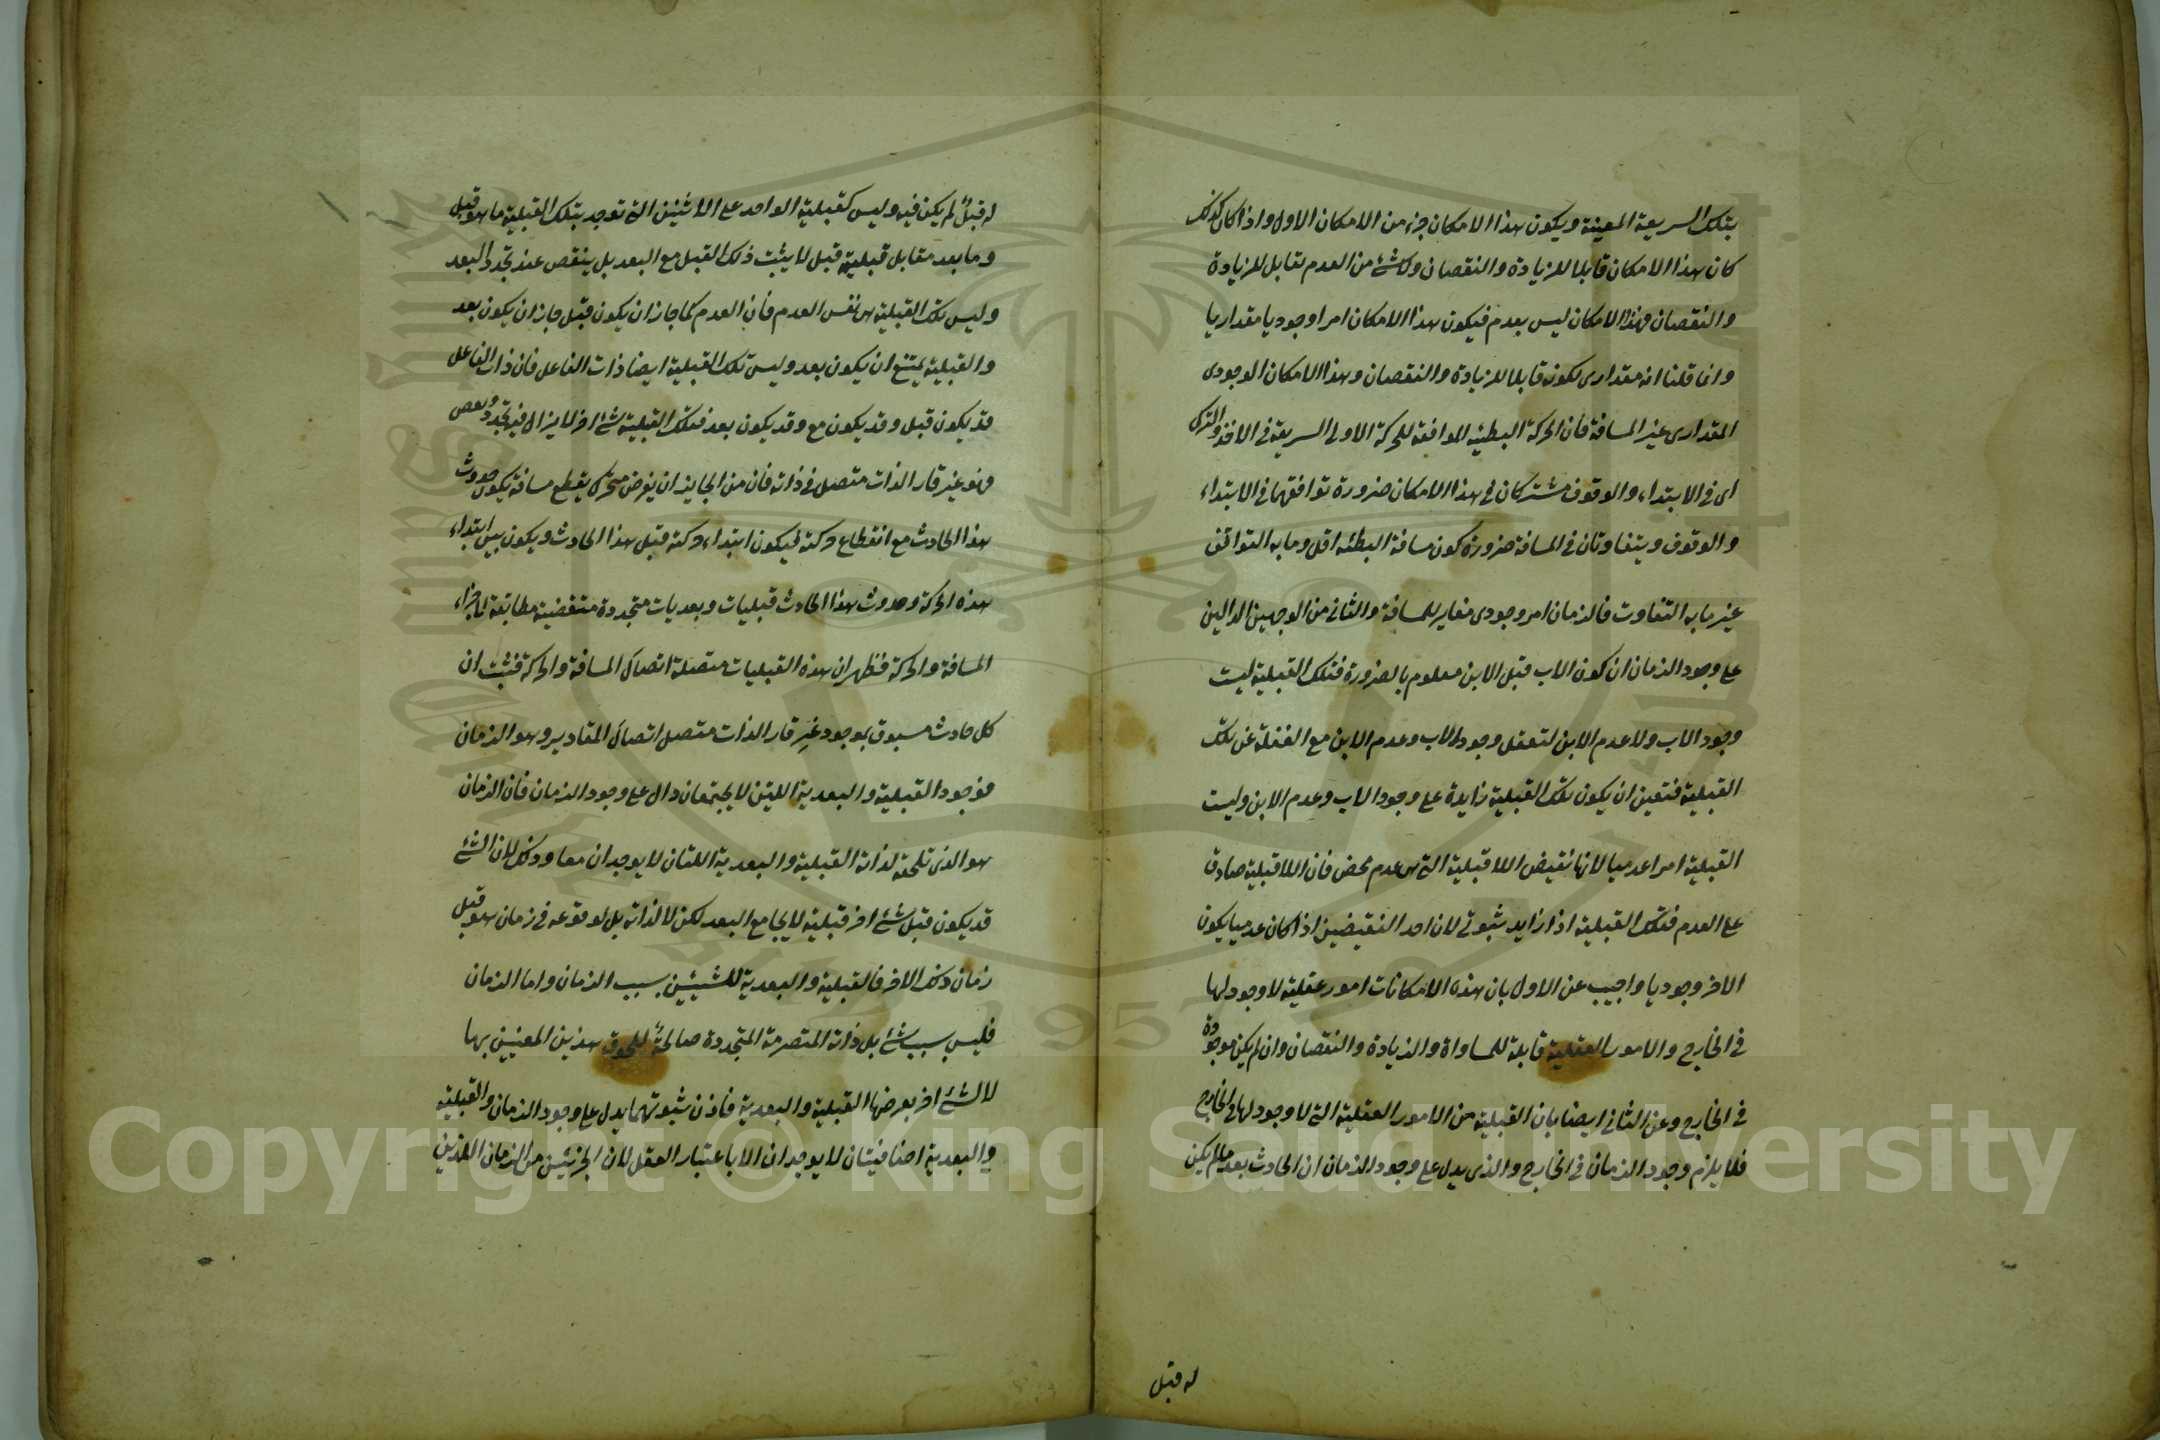 بتلك السريعة المعينة ويكون هذا الامكان جزء من الامكان الاول واذا كان كذلك
كان هذا الامكان قابلا للزيادة والنقصان ولا شئ من العدم بقابل للزيادة
والنقصان فهذا الامكان ليس بعدم فيكون هذا الامكان امرا وجوديا مقداريا
وانما قلنا انه مقدارى لكونه قابلا للزيادة والنقصان وهذا الامكان الوجودى
المقدارى غير المسافة فان الحركة البطيئة الموافقة للحركة الاولى السريعة فى الاخذ والترك
اى فى الابتداء والوقوف مشتركان فى هذا الامكان ضرورة توافقهما فى الابتداء
والوقوف ويتفاوتان فى المسافة ضرورة كون مسافة البطئه اقل وما به التوافق
غير ما به التفاوت فالزمان امر وجودى مغاير للمسافة والثانى من الوجهين الدالين
على وجود الزمان ان كون الاب قبل الابن معلوم بالضرورة فتلك القبلية ليست
وجود الاب ولا عدم الابن لتعقل وجود الاب وعدم الابن مع الغفلة عن تلك
القبلية فتعين ان يكون تلك القبلية زايدة على وجود الاب وعدم الابن وليست
القبلية امرا عدميا لانها نقيض اللاقبلية التى هى عدم محض فان اللاقبلية صادق
على العدم فتلك القبلية اذا زايد ثبوتى لان احد النقيضين اذا كان عدميا يكون
الاخر وجوديا واجيب عن الاول بان هذه الامكانات امور عقلية لا وجود لها
فى الخارج والامور العقلية قابلة للمساواة والزيادة والنقصان وان لم يكن موجودة
فى الخارج وعن الثانى ايضا بان القبلية من الامور العقلية التى لا وجود لها فى الخارج
فلا يلزم وجود الزمان فى الخارج والذى يدل على وجود الزمان ان الحادث بعد ما لم يكن
له قبل
له قبل لم يكن فيه وليس كقبلية الواحد على الاثنين التى توجد بتلك القبلية ما هو قبل
وما بعد مقابل قبلية قبل لا يثبت ذلك القبل مع البعد بل ينقص عند تجدد البعد
وليس تلك القبلية هى نفس العدم فان العدم كما جاز ان يكون قبل جاز ان يكون بعد
والقبلية يمتنع ان يكون بعد وليس تلك القبلية ايضا ذات الفاعل فان ذات الفاعل
قد يكون قبل وقد يكون مع وقد يكون بعد فتلك القبلية شئ اخر لا يزال فيه تجدد
فهو غير قار الذات متصل فى ذاته فان من الجايز ان يفرض متحرك يقطع مسافة يكون حدوث
هذا الحادث مع انقطاع حركته فيكون ابتداء حركته قبل هذا الحادث ويكون بين ابتداء
هذه الحركة وحدوث هذا الحادث قبليات وبعديات متجددة منقضية مطابقة لاجزاء
المسافة والحركة فظهر ان هذه القبليات متصلة اتصال المسافة والحركة فثبت ان
كل حادث مسبوق بموجود غير قار الذات متصل اتصال المقادير وهو الزمان
فوجود القبلية والبعدية اللتين لا يجتمعان دال على وجود الزمان فان الزمان
هو الذى تلحقه لذاته القبلية والبعدية اللتان لا يوجدان معا وذلك لان الشئ
قد يكون قبل شئ اخر قبلية لا يجامع البعد لكن لا لذاته بل لوقوعه فى زمان هو قبل
زمان ذلك الاخر فالقبلية والبعدية للشيئين بسبب الزمان واما الزمان
فليس بسبب شئ بل ذاته المتصرمة المتجددة صالحة للحوق هذين المعنيين بها
لا لشئ اخر يعرضها القبلية والبعدية فاذن ثبوتهما يدل على وجود الزمان والقبلية
والبعدية اضافيتان لا يوجدان الا باعتبار العقل لان الجزئين من الزمان اللذين
Copyright © King Saud University
1957